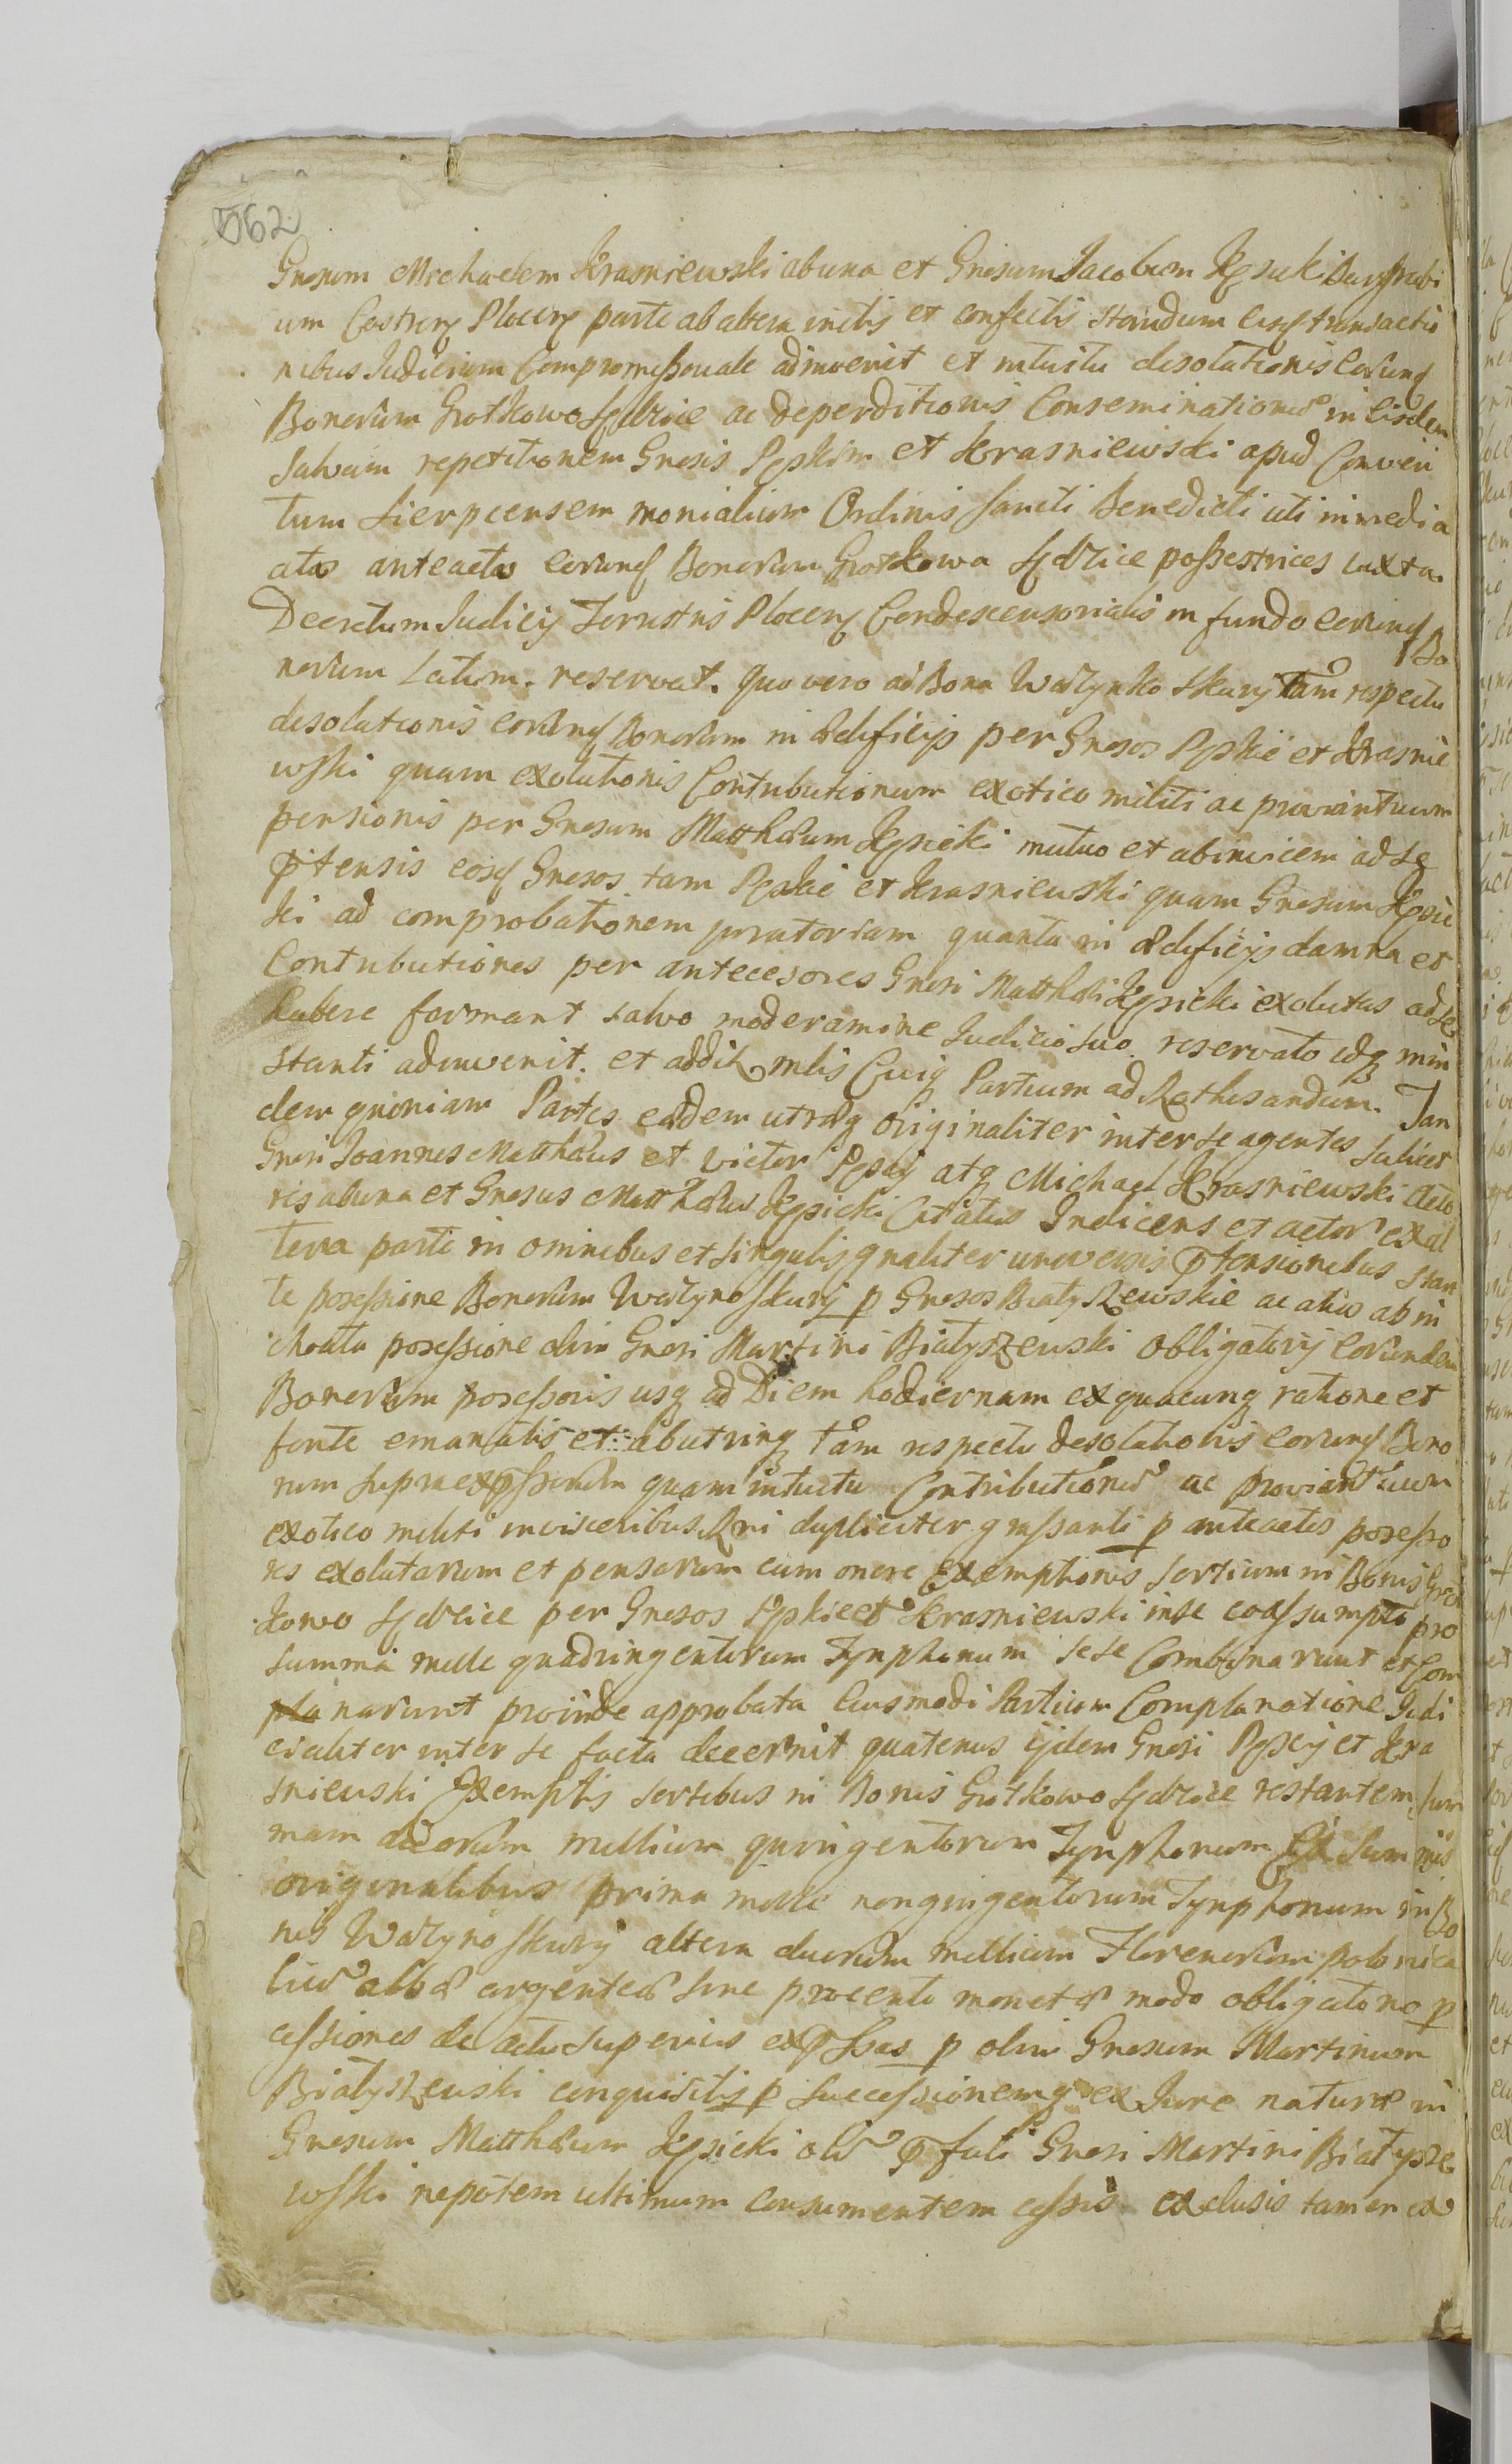 562
Gnosum Michaelem Krasniewski ab una et Gnosum Jacobum Kęsicki Burgrabi
um Castren Plocen parte ab altera initis et confectis standum eisq transactio
nibus Judicium Compromissoriale adinvenit et intuitu desolationis eorunq
Bonorum Grotkowo Sędzice ac deperditionis Conseminationis in eisdem
salvam repetitionem Gnosis Pęskim et Krasniewski apud Conven
tum Sierpcensem monialium Ordinis Sancti Benedicti uti immedia
atas anteactas eorunq Bonorum Grotkowa Sędzice possestrices iuxta
Decretum Judicij Terrestris Plocen Condescensorialis in fundo eorunq Bo
norum Latum. reservat. Quo vero ad Bona Ważynko Skury tam respectu
desolationis eorunq Bonorum in ædificijs per Gnosos Pęskie et Krasnie
wski quam exolutionis Contributionum exotico militi ac proviantuum
pensionis per Gnosum Matthæum Kęsicki mutuo et abinvicem ad se
prtensis eosq Gnosos tam Pęskie et Krasniewski quam Gnosum Kęsic
ki ad comprobationem juratoriam quanta in ædificijs damna et
Contributiones per antecesores Gnosi Matthæi Kęsicki exolutas ad se
habere formant salvo moderamine Judicio suo reservato idq min
stanti adinvenit. et addit mlis Cuiq Partium ad Rothisandum. Tan
dem quoniam Partes eædem utræq originaliter inter se agentes scilicet
Gnosi Joannes Matthæus et Victor Pęscy atq Michael Krasniewski acto
res ab una et Gnosus Matthæus Kęsicki Citatus Indicens et actor ex al
tera parte in omnibus et singulis qualiter universis prtensionibus stan
te possessione Bonorum Ważyno Skury p Gnosos Białyszewskie ac alias ab in
choata possessione olim Gnosi Martini Białyszewski obligatorij eorundem
Bonorum possessoris usq ad Diem hodiernam ex quacunq ratione et
fonte emanatis et ab utrinq tam respectu desolationis eorunq Bono
rum supraexprssorum quam intuitu Contributionis ac proviantuum
exotico militi in visceribus Rni dupliciter grassanti p anteactos possesso
res exolutarum et pensarum cum onere exemptionis sortium in Bonis Grot
kowo Sędzice per Gnosos Pęskie et Krasniewski in se coassumpto pro
summa mille quadringentorum Tynphonum sese Combinarunt et Com
planarunt proinde approbata eiusmodi Partium Complanatione Judi
cialiter inter se facta decernit quatenus ijdem Gnosi Pęscy et Kra
sniewski Exemptis sortibus in Bonis Grotkowo Sędzice restantem sum
mam duorum millium quingentorum Tynphonum Ex summis
originalibus prima mille nongingentorum Tynphonum in Bo
nis Ważyno Skury altera duorum millium Florenorum polonica
lium albæ argenteæ sine procento monetæ modo obligatorio p
cessiones de actu superius exprssas p olim Gnosum Martinum
Białyszewski conquisitis p successionemq ex Jure naturæ in
Gnosum Matthæum Kęsicki prfati Gnosi Martini Białysze
wski nepotem ultimum consumentem cessis exclusis tamen ex